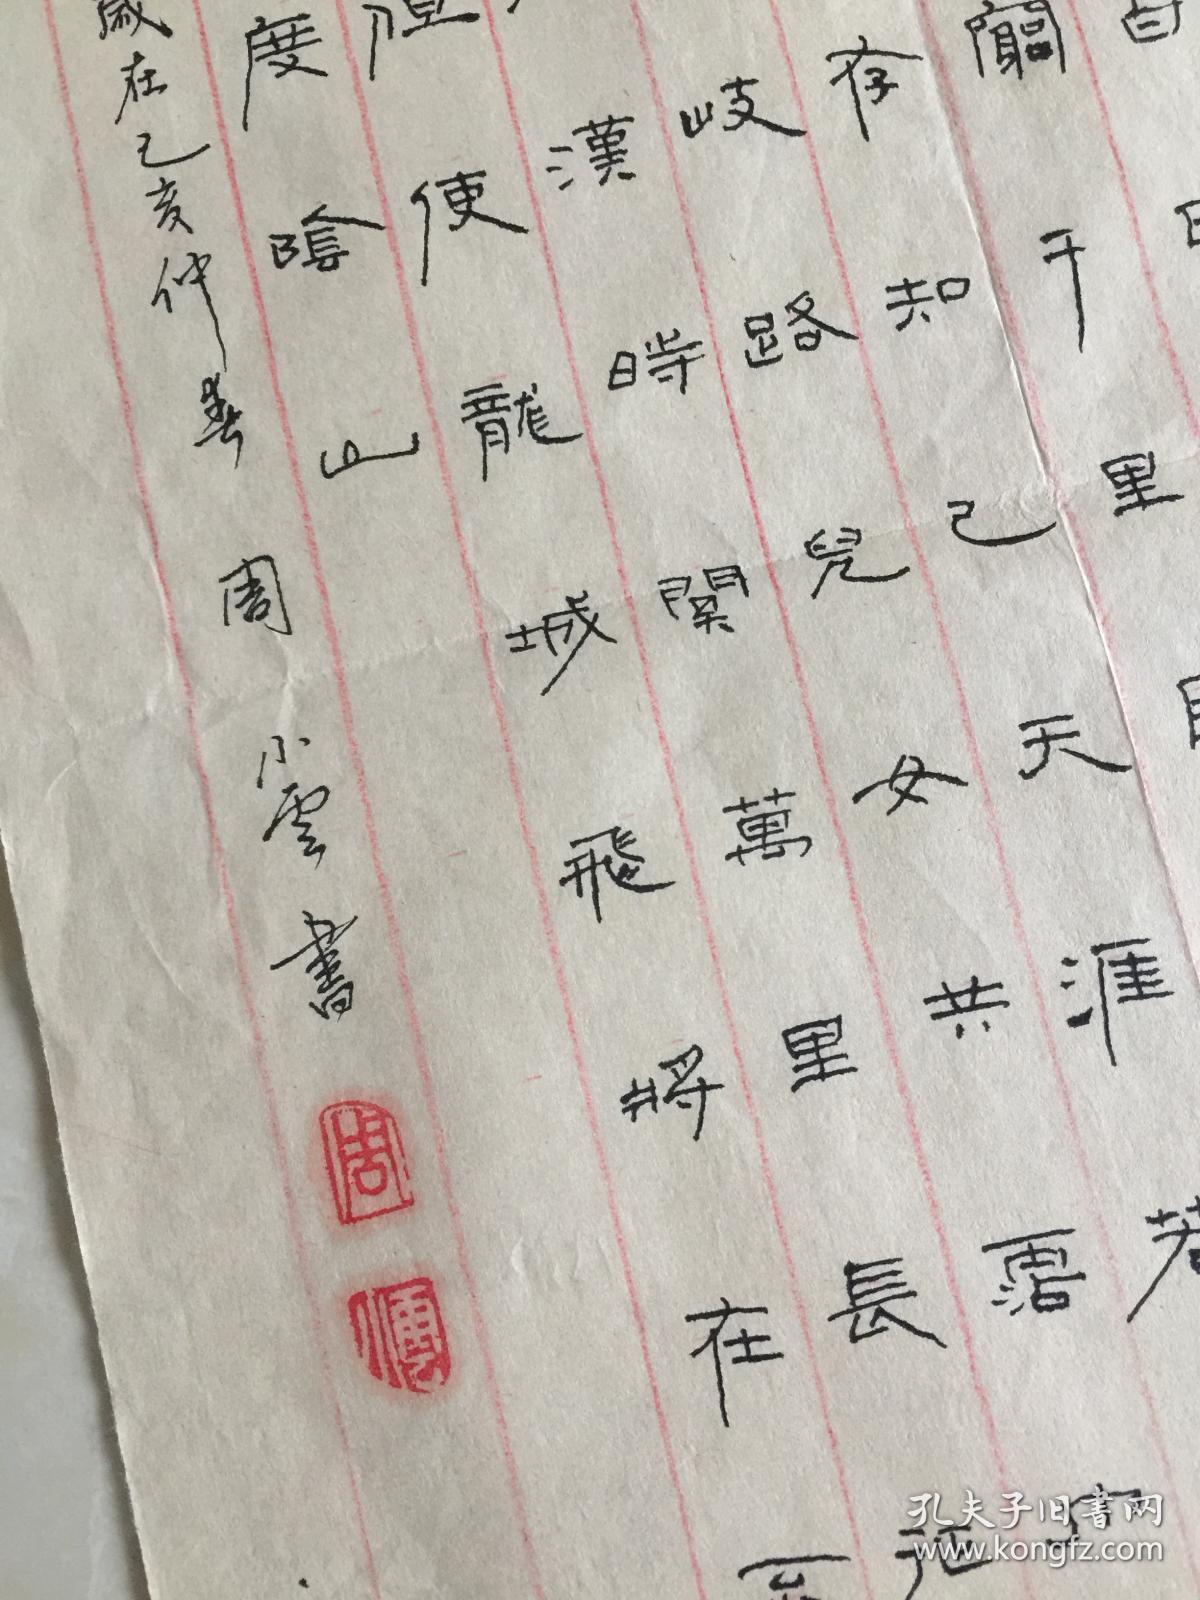 窮千里目
存知己天涯若
岐路兒女共霑巾
漢時關萬里長征
但使龍城飛將在不
度陰山
歲在己亥仲春周小雲書
周
孔夫子旧书网
www.kongfz.com